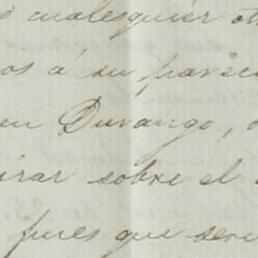 ó cualesquier ot
os á su favor
en Durango,
irar sobre el
pues que sere